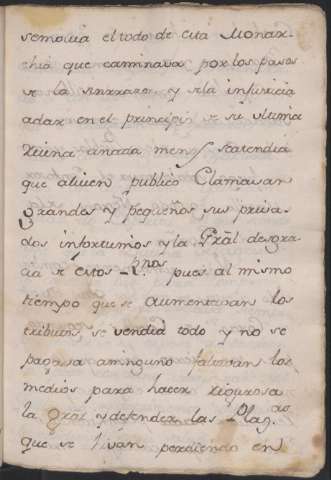 semovia el todo de esta Monar-
chia que caminava por los pasos
de la sinrrazon, y de la injusticia
adar en el principio de su ultima
Ruina anada menos se atendia
que al vien publico Clamavan
grandes y pequeños sus priva-
dos infortunios y la Gräl desgra-
cia de estos Rnos pues al mismo
tiempo que se aumentavan los
tributos, se vendia todo y no se
pagava aninguno faltavan los
medios para hacer rigurosa
la gräl y defender las Plazas
que se ivan perdiendo en